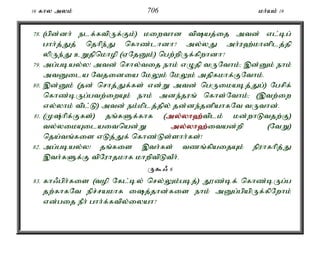 16 கால அலம் 706 மர்யம் 19
78. (பின்னர் நடக்கவிருக்கும்) மறைவான விஷயத்தை அவன் எட்டிப்
பார்த்துத் தெரிந்து கொண்டானா? அல்லது அர்ரஹ்மானிடத்தி
லிருந்து உறுதிமொழி (ஏதேனும்) பெற்றிருக்கிறானா?
79. அப்படியல்ல! அவன் சொல்வதை நாம் எழுதி வருவோம்; இன்னும் நாம்
அவனுடைய வேதனையை மேலும் மேலும் அதிகமாக்குவோம்.
80. இன்னும் (தன் சொத்துக்கள் என்று அவன் பெருமையடித்துப்) பேசிக்
கொண்டிருப்பவற்றையும் நாம் அனந்தரங் கொள்வோம்; (இவற்றை
எல்லாம் விட்டு) அவன் நம்மிடத்தில் தன்னந்தனியாகவே வருவான்.
81. (முஷ்ரிக்குகள்) தங்களுக்காக (அல்லாஹ்விடம் மன்றாடுவதற்கு)
வல்லமையுடையவையென்று அல்லாஹ்வையன்றி (வேறு)
தெய்வங்களை எடுத்துக் கொண்டுள்ளார்கள்!
82. அப்படியல்ல! தங்களை இவர்கள் வணங்கியதையும் நிராகரித்து
இவர்களுக்கு விரோதமாக மாறிவிடுவர்.
ருகூஃ 6
83. காஃபிர்களை (வழி கேட்டில் செல்லும்படித்) தூண்டிக் கொண்டிருப்ப
தற்காகவே நிச்சயமாக ஷைத்தான்களை நாம் அனுப்பியிருக்கிறோம்
என்பதை நீர் பார்க்கவில்லையா?